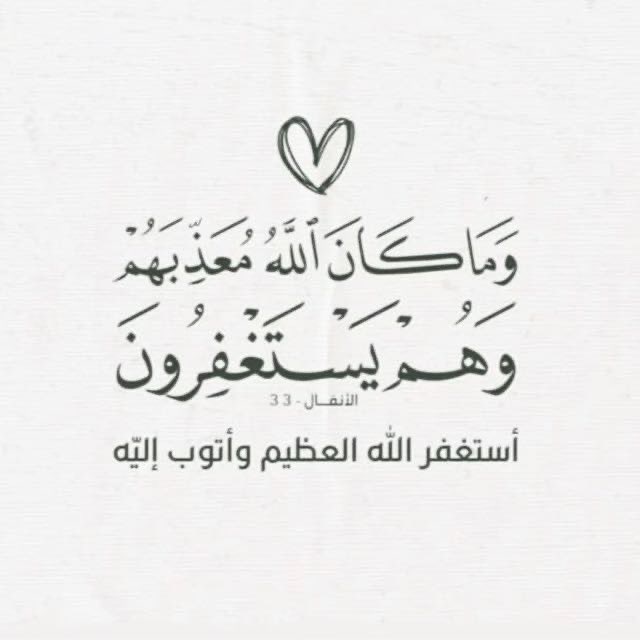 وَمَا كَانَ ٱللَّهُ مُعَذِّبَهُمْ
وَهُمْ يَسْتَغْفِرُونَ
الأنفال - 33
أستغفر الله العظيم وأتوب إليّه